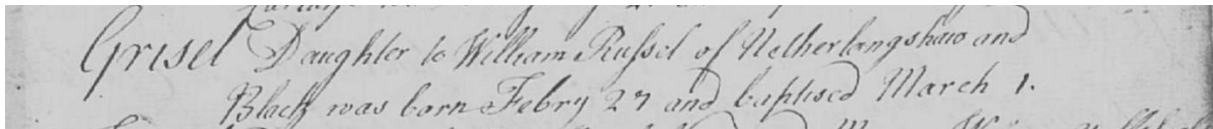 Grisel Daughter to William Russel of Netherlangshaw and
Black was born Febry 27 and baptised March 1.